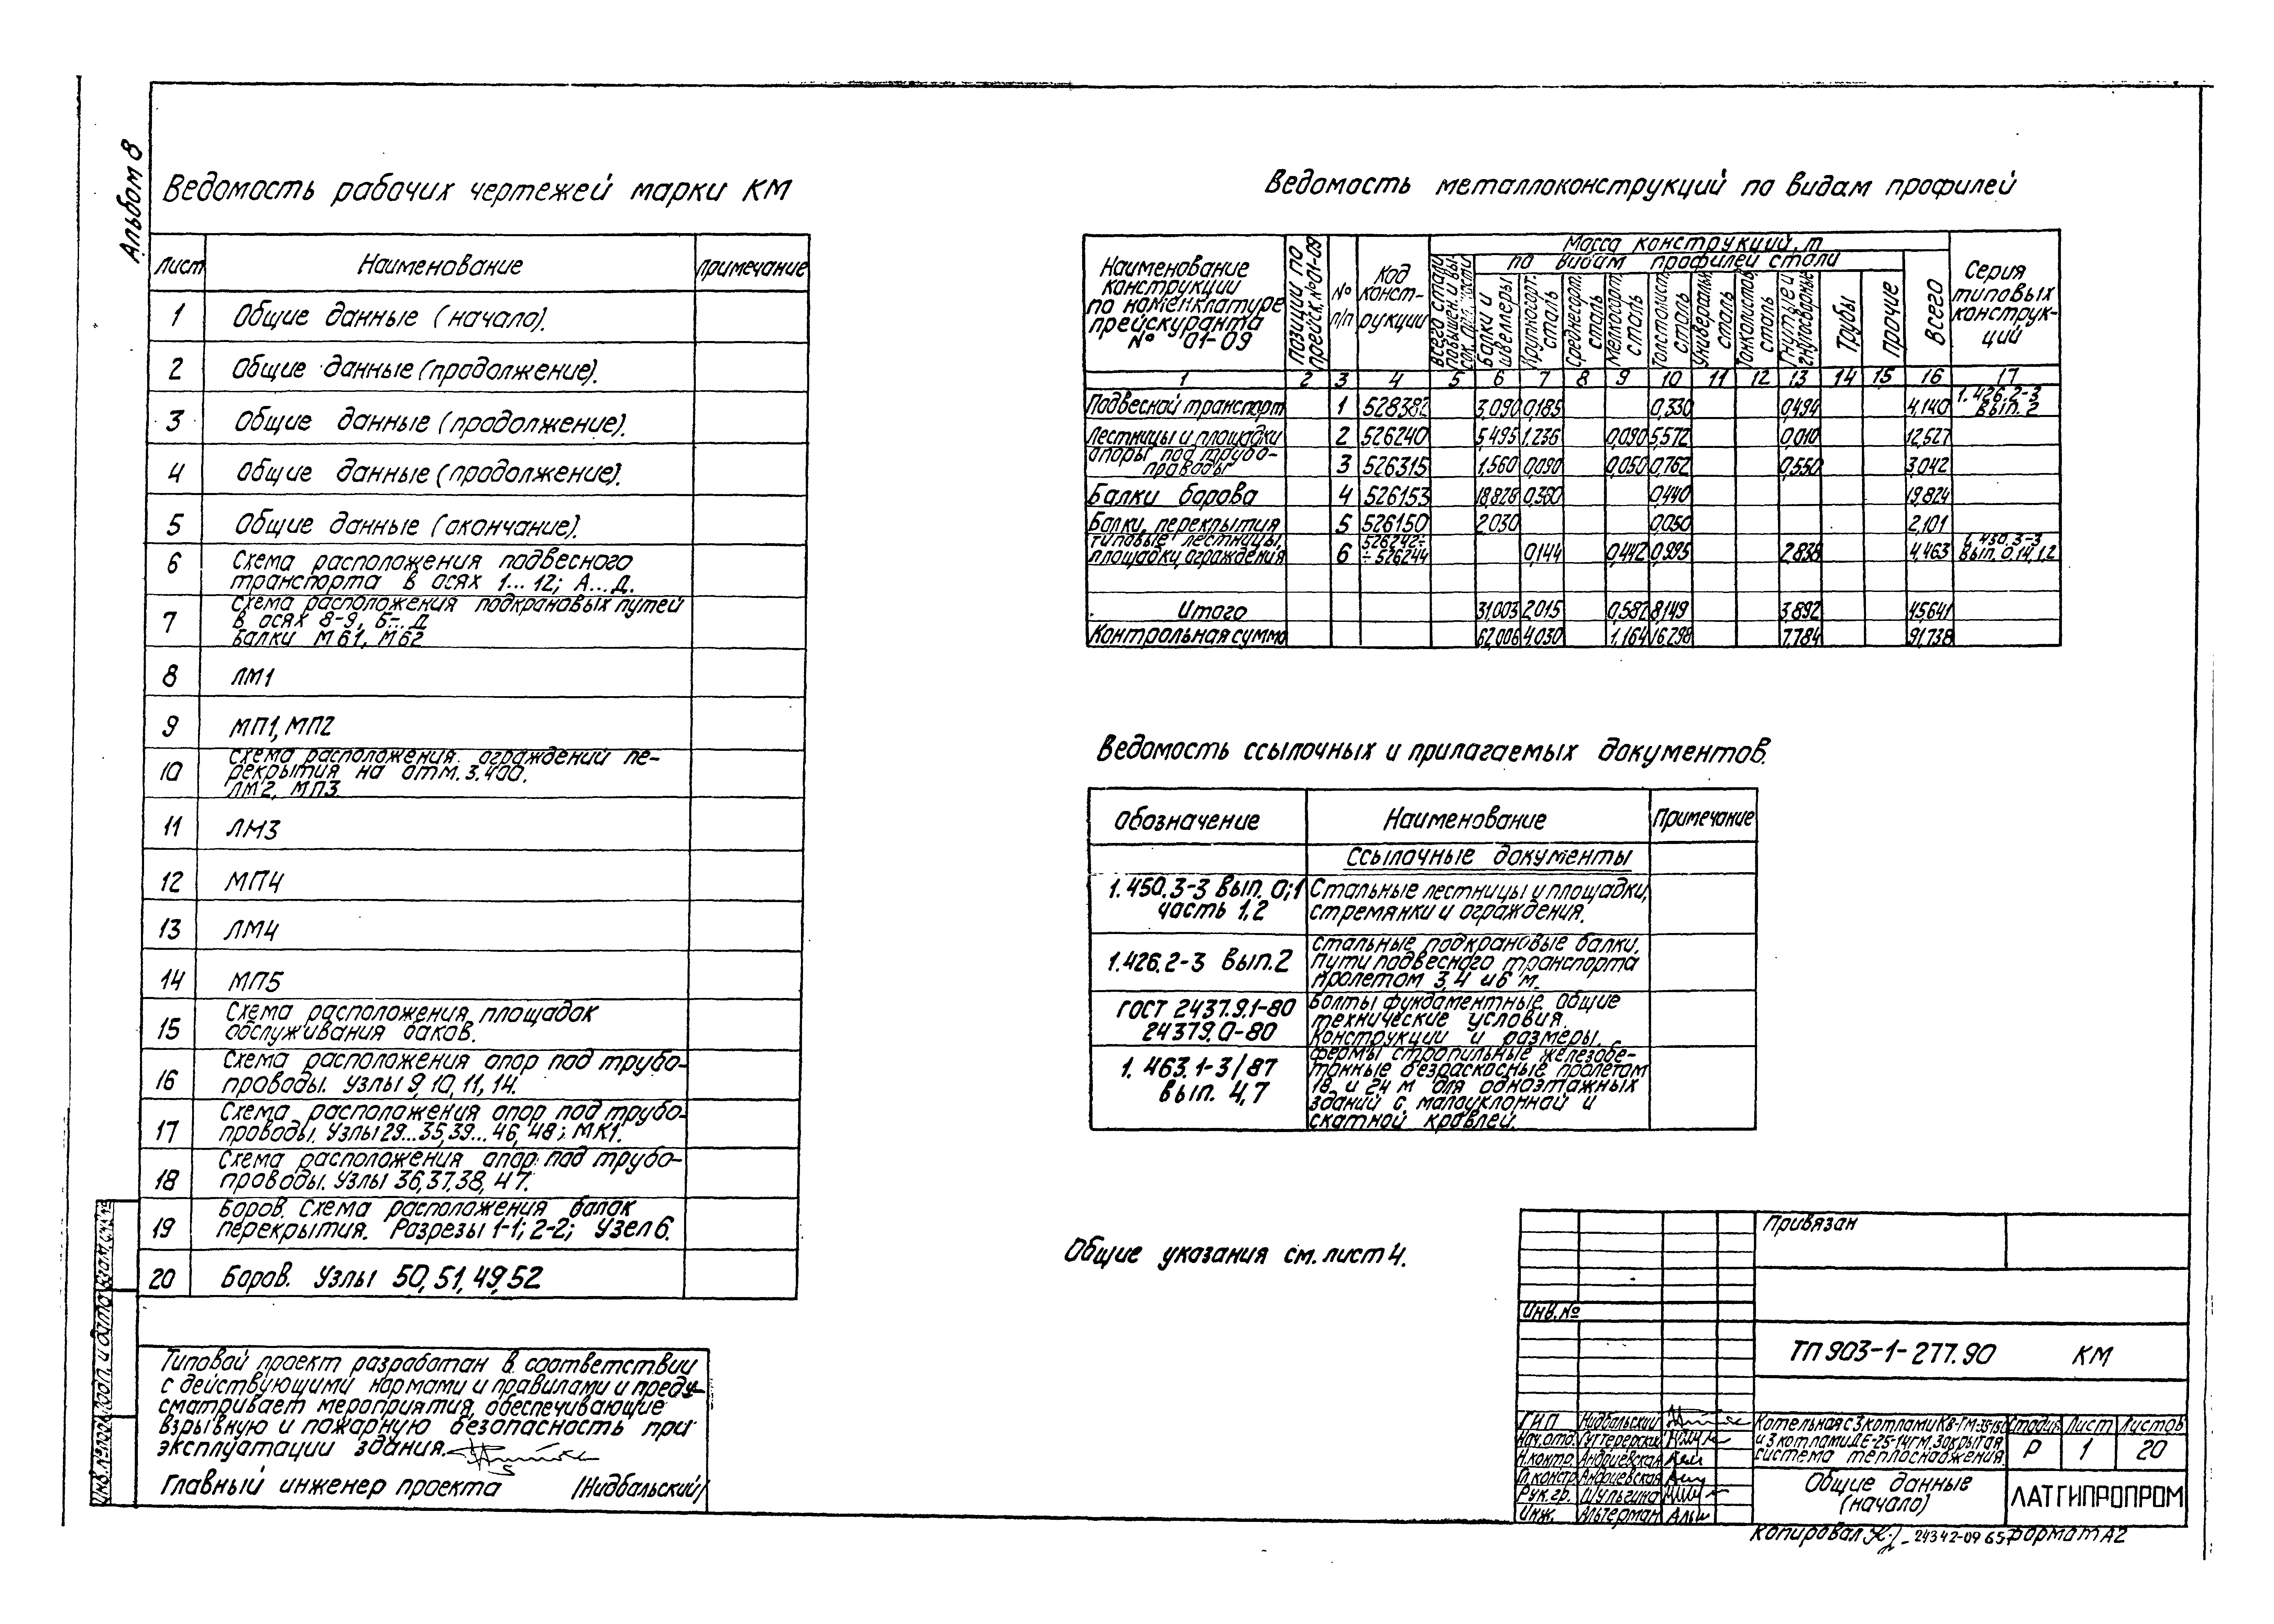 Альбом 8
Ведомость рабочих чертежей марки КМ
Лист Наименование Примечание
1 Общие данные (начало).
2 Общие данные (продолжение).
3 Общие данные (продолжение).
4 Общие данные (продолжение).
5 Общие данные (окончание).
6 Схема расположения подвесного
транспорта в осях 1...12; А...Д.
7 Схема расположения подкрановых путей
в осях 8-9, Б-..Д
Балки М61, М62
8 ЛМ1
9 МП1, МП2
10 Схема расположения ограждений пе-
рекрытия на отм. 3.400.
ЛМ2, МП3
11 ЛМ3
12 МП4
13 ЛМ4
14 МП5
15 Схема расположения площадок
обслуживания баков.
16 Схема расположения опор под трубо-
проводы. Узлы 9, 10, 11, 14.
17 Схема расположения опор под трубо-
проводы. Узлы 29...35, 39...46, 48; МК1.
18 Схема расположения опор под трубо-
проводы. Узлы 36, 37, 38, 47.
19 Боров. Схема расположения балок
перекрытия. Разрезы 1-1; 2-2; Узел 6.
20 Боров. Узлы 50, 51, 49, 52
Типовой проект разработан в соответствии
с действующими нормами и правилами и преду-
сматривает мероприятия, обеспечивающие
взрывную и пожарную безопасность при
эксплуатации здания.
Главный инженер проекта /Нидбальский/
Ведомость металлоконструкций по видам профилей
Наименование
конструкции
по номенклатуре
прейскуранта
№ 01-09
Позиции по
прейск. №01-09
№
п/п
Код
конст-
рукции
Масса конструкций, т
по видам профилей стали
Всего стали
Балки и
швеллеры
Крупносорт.
сталь
Среднесорт.
сталь
Мелкосорт.
сталь
Толстолист.
сталь
Универсальн.
сталь
Тонколистов.
сталь
Гнутые и
гнутосварные
Трубы
Прочие
Всего
Серия
типовых
конструк-
ций
1 2 3 4 5 6 7 8 9 10 11 12 13 14 15 16 17
Подвесной транспорт 1 528382 3,090 0,185 0,330 0,494 4,140 1.426.2-3
Вып. 2
Лестницы и площадки 2 526240 5,495 1,236 0,090 5,572 0,010 12,527
Опоры под трубо-
проводы 3 526315 1,560 0,090 0,050 0,762 0,550 3,042
Балки борова 4 526153 18,828 0,380 0,440 19,824
Балки перекрытия 5 526150 2,030 0,050 2,101
Типовые лестницы,
площадки, ограждения 6 526242÷
÷526244 0,144 0,442 0,995 2,838 4,463 1.450.3-3
Вып. 0.14,1.2
Итого 31,003 2,015 0,582 8,149 3,892 45,641
Контрольная сумма 62,006 4,030 1,164 16,298 7,784 91,738
Ведомость ссылочных и прилагаемых документов.
Обозначение Наименование Примечание
Ссылочные документы
1.450.3-3 Вып. 0;1 Стальные лестницы, площадки,
часть 1,2 стремянки и ограждения.
1.426.2-3 Вып.2 Стальные подкрановые балки.
Пути подвесного транспорта
пролетом 3, 4 и 6 м.
ГОСТ 24379.1-80 Болты фундаментные. Общие
24379.0-80 технические условия.
Конструкции и размеры.
1.463.1-3/87 Фермы стропильные железобе-
вып. 4,7 тонные безраскосные пролетом
18 и 24 м для одноэтажных
зданий с малоуклонной и
скатной кровлей.
Общие указания см. лист 4.
Привязан
Инв.№
ТП 903-1-277.90 КМ
ГИП Нидбальский
Нач.отд.
Н.контр. Андриевская
Гл.констр. Андриевская
Рук.гр. Шульгина
Инж. Альтерман
Котельная с 3 котлами КВ-ГМ-35-150
и 3 котлами ДЕ-25-14ГМ. Закрытая
система теплоснабжения.
Стадия Лист Листов
Р 1 20
Общие данные
(начало)
ЛАТГИПРОПРОМ
Копировал 24342-09 65 Формат А2
Инв.№ подл. Подп. и дата Взам.инв.№